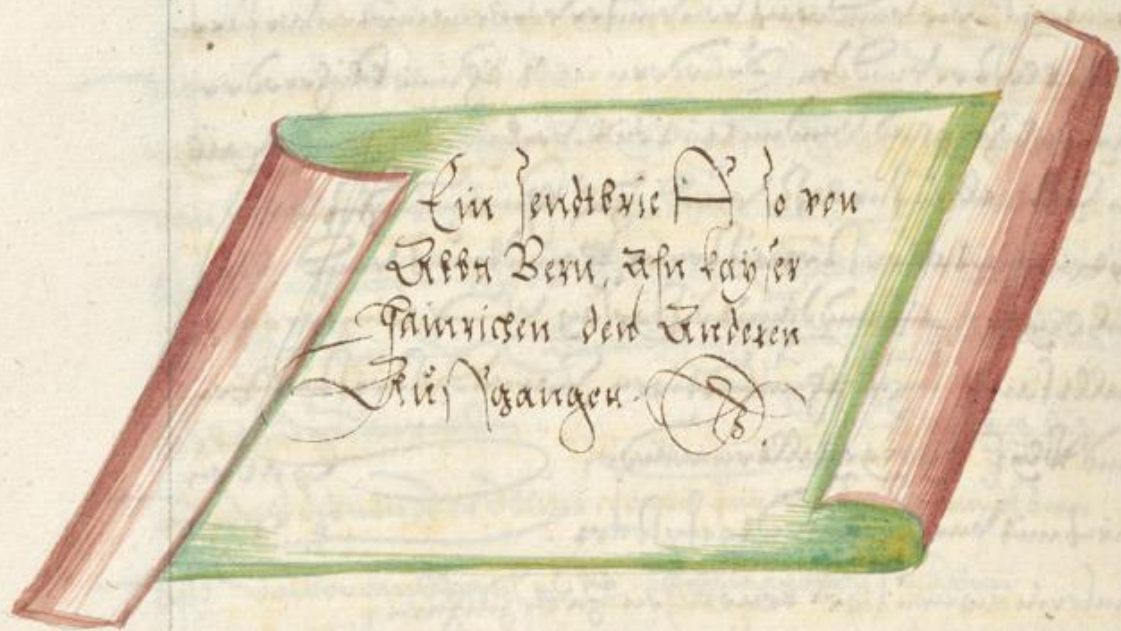 Ein sendtbrieff so von
Abbt Bern, Ahn kayser
Hainrichen den Anderen
Außgangen.